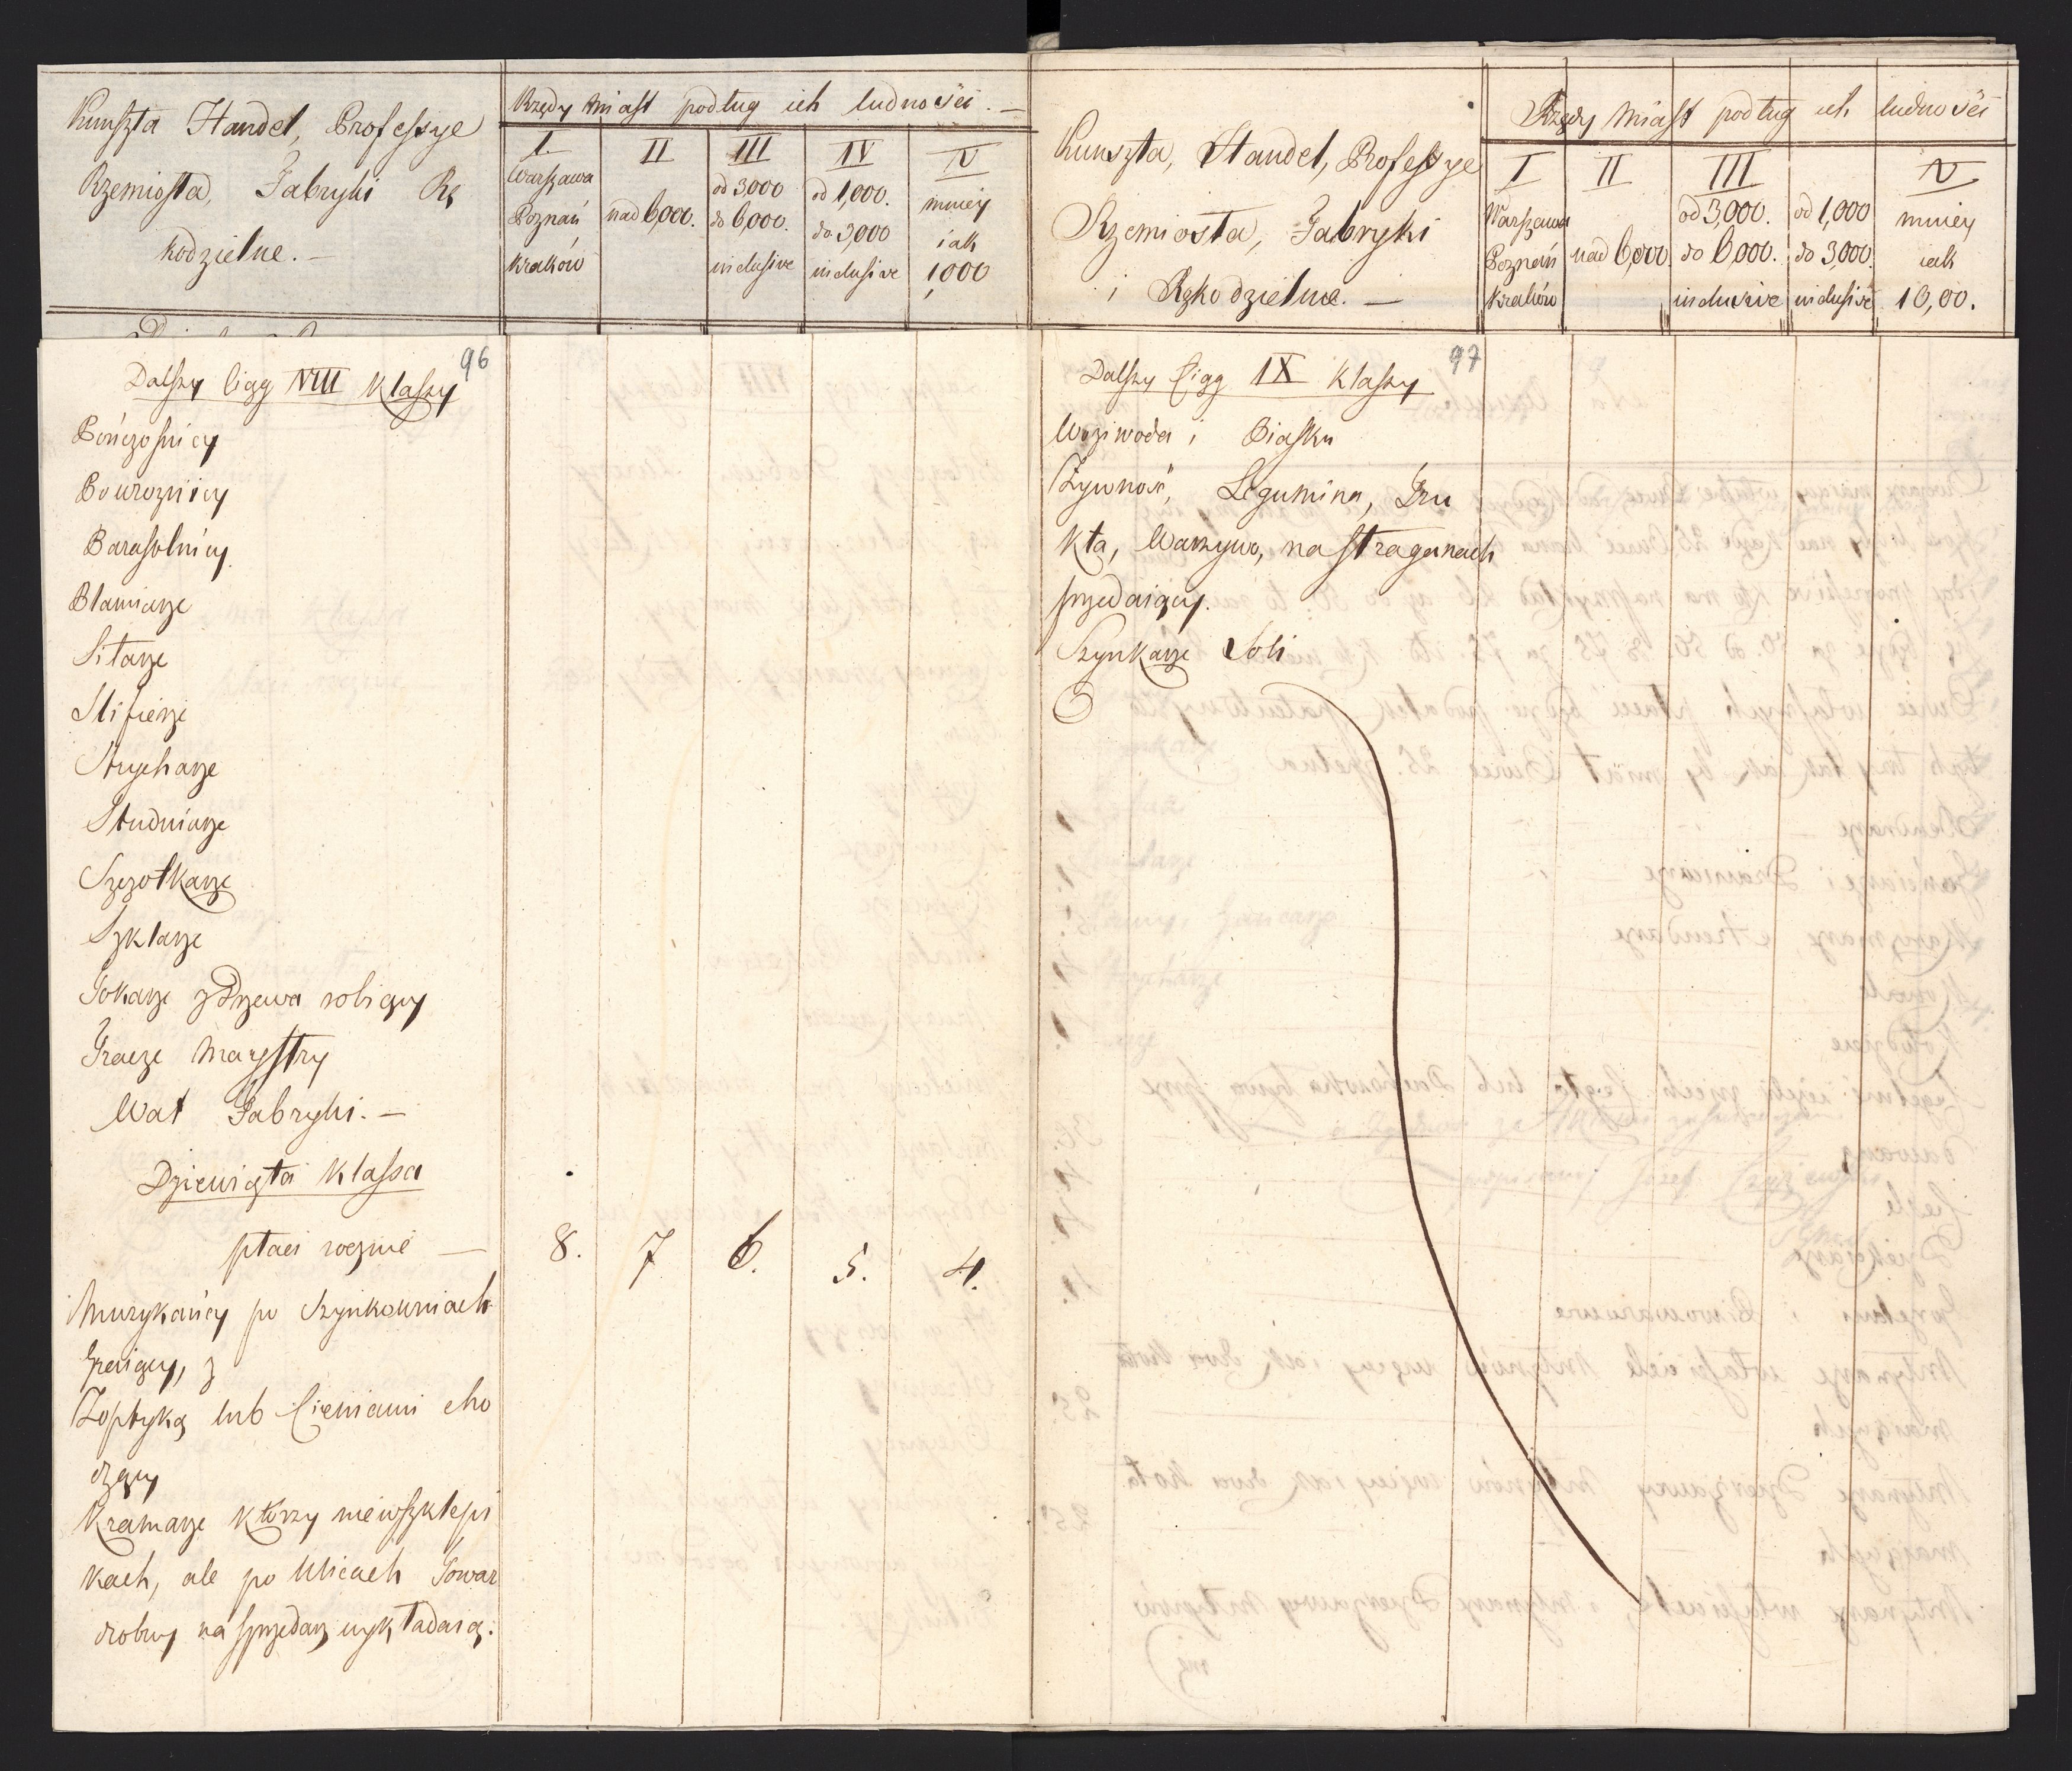 Kunszta Handel, Professye
Rzemiosła, Fabryki Rę
kodzielne. —
Rzędy Miast podług ich ludności. —
I.
Warszawa
Poznań
Kraków
II
nad 6,000.
III
od 3000
do 6,000.
inclusive
IV
od 1,000.
do 3,000
inclusive
V
mniey
iak
1,000
96
Dalszy Ciąg VIII Klassy
Pończosznicy
Powroznicy
Parasolnicy
Planiarze
Sitarze
Slifierze
Strycharze
Studniarze
Szczotkarze
Szklarze
Tokarze z Drzewa robiący
Tracze Maystry
Wat Fabryki. —
Dziewiąta Klassa
płaci rocznie — 8. 7 6. 5. 4.
Muzykańcy po Szynkowniach
Graiący, z
Zoptyką lub Cieniami cho
dzący
Kramarze którzy niewszklepi
kach, ale po Ulicach Towar
drobny na sprzedarz wykładaią.
Kunszta, Handel, Professye
Rzemiosła, Fabryki
i Rękodzielne. —
Rzędy Miast podług ich ludności
I
Warszawa
Poznań
Kraków
II
nad 6,000.
III
od 3,000.
do 6,000.
inclusive
od 1,000
do 3,000.
inclusive
V
mniey
iak
10,00.
97
Dalszy Ciąg IX Klassy
Woziwoda i Piasku
Żywność, Legumina, Fru
kta, Warzywo, na Straganach
przedaiący.
Szynkarze Soli